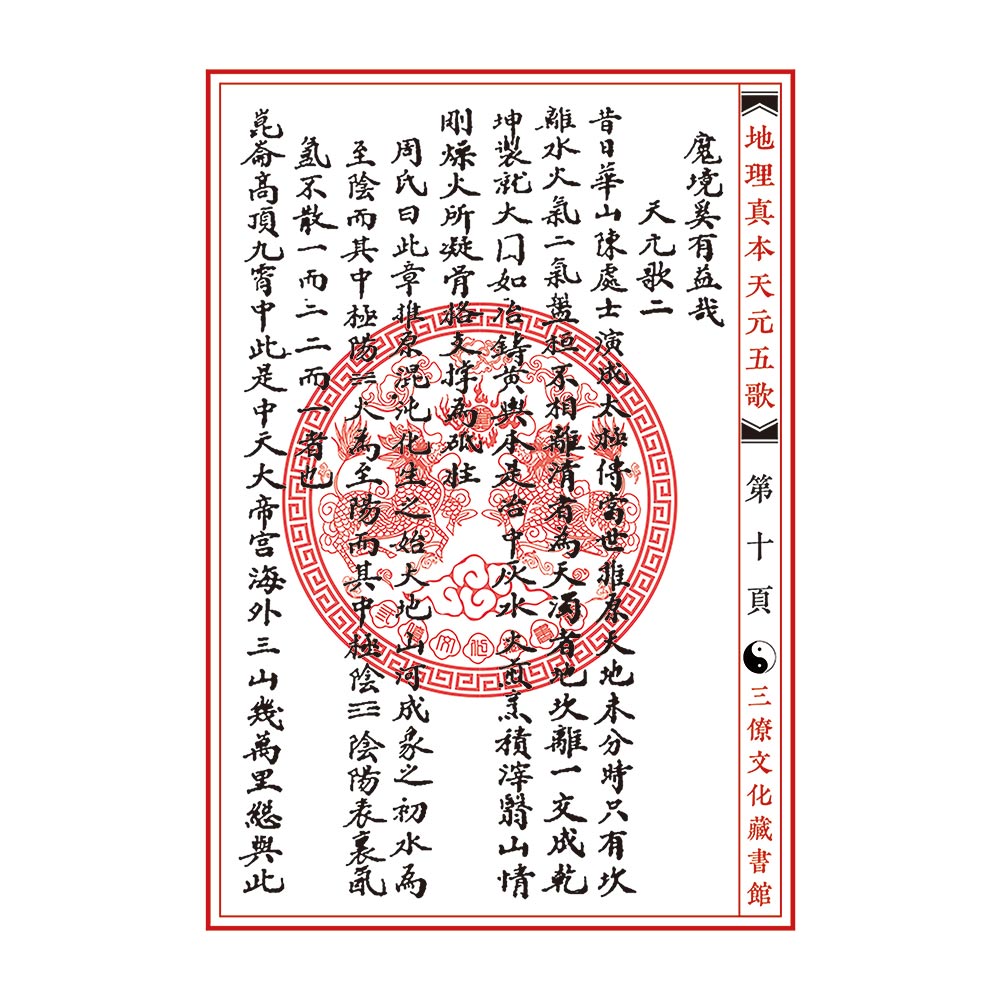 地理真本天元五歌
第十頁
三僚文化藏書館
魔境奚有益哉
天元歌二
昔日華山陳處士演成太極傳當世推原天地未分時只有坎
離水火氣二氣盤桓不相離清者為天濁者地坎離一交成乾
坤裝就大冂如冶鑄黃輿本是冶中灰水火煎熬積滓翳山情
剛燥火所凝骨格支撐為砥柱
周氏曰此章推原混沌化生之始大地山河成象之初水為
至陰而其中極陽☵火為至陽而其中極陰☲陰陽表裏氤
氳不散一而二二而一者也
崑崙高頂九霄中此是中天大帝宮海外三山幾萬里總與此